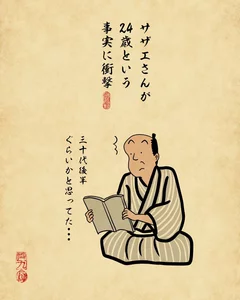 サザエさんが
24歳という
事実に衝撃
三十代後半
ぐらいかと思ってた・・・